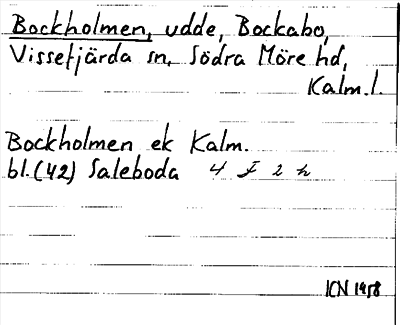 Bockholmen, udde, Bockabo,
Vissefjärda sn, Södra Möre hd,
Kalm. l.
Bockholmen ek Kalm.
bl. (42) Saleboda 4 F 2 h
ICN 1958